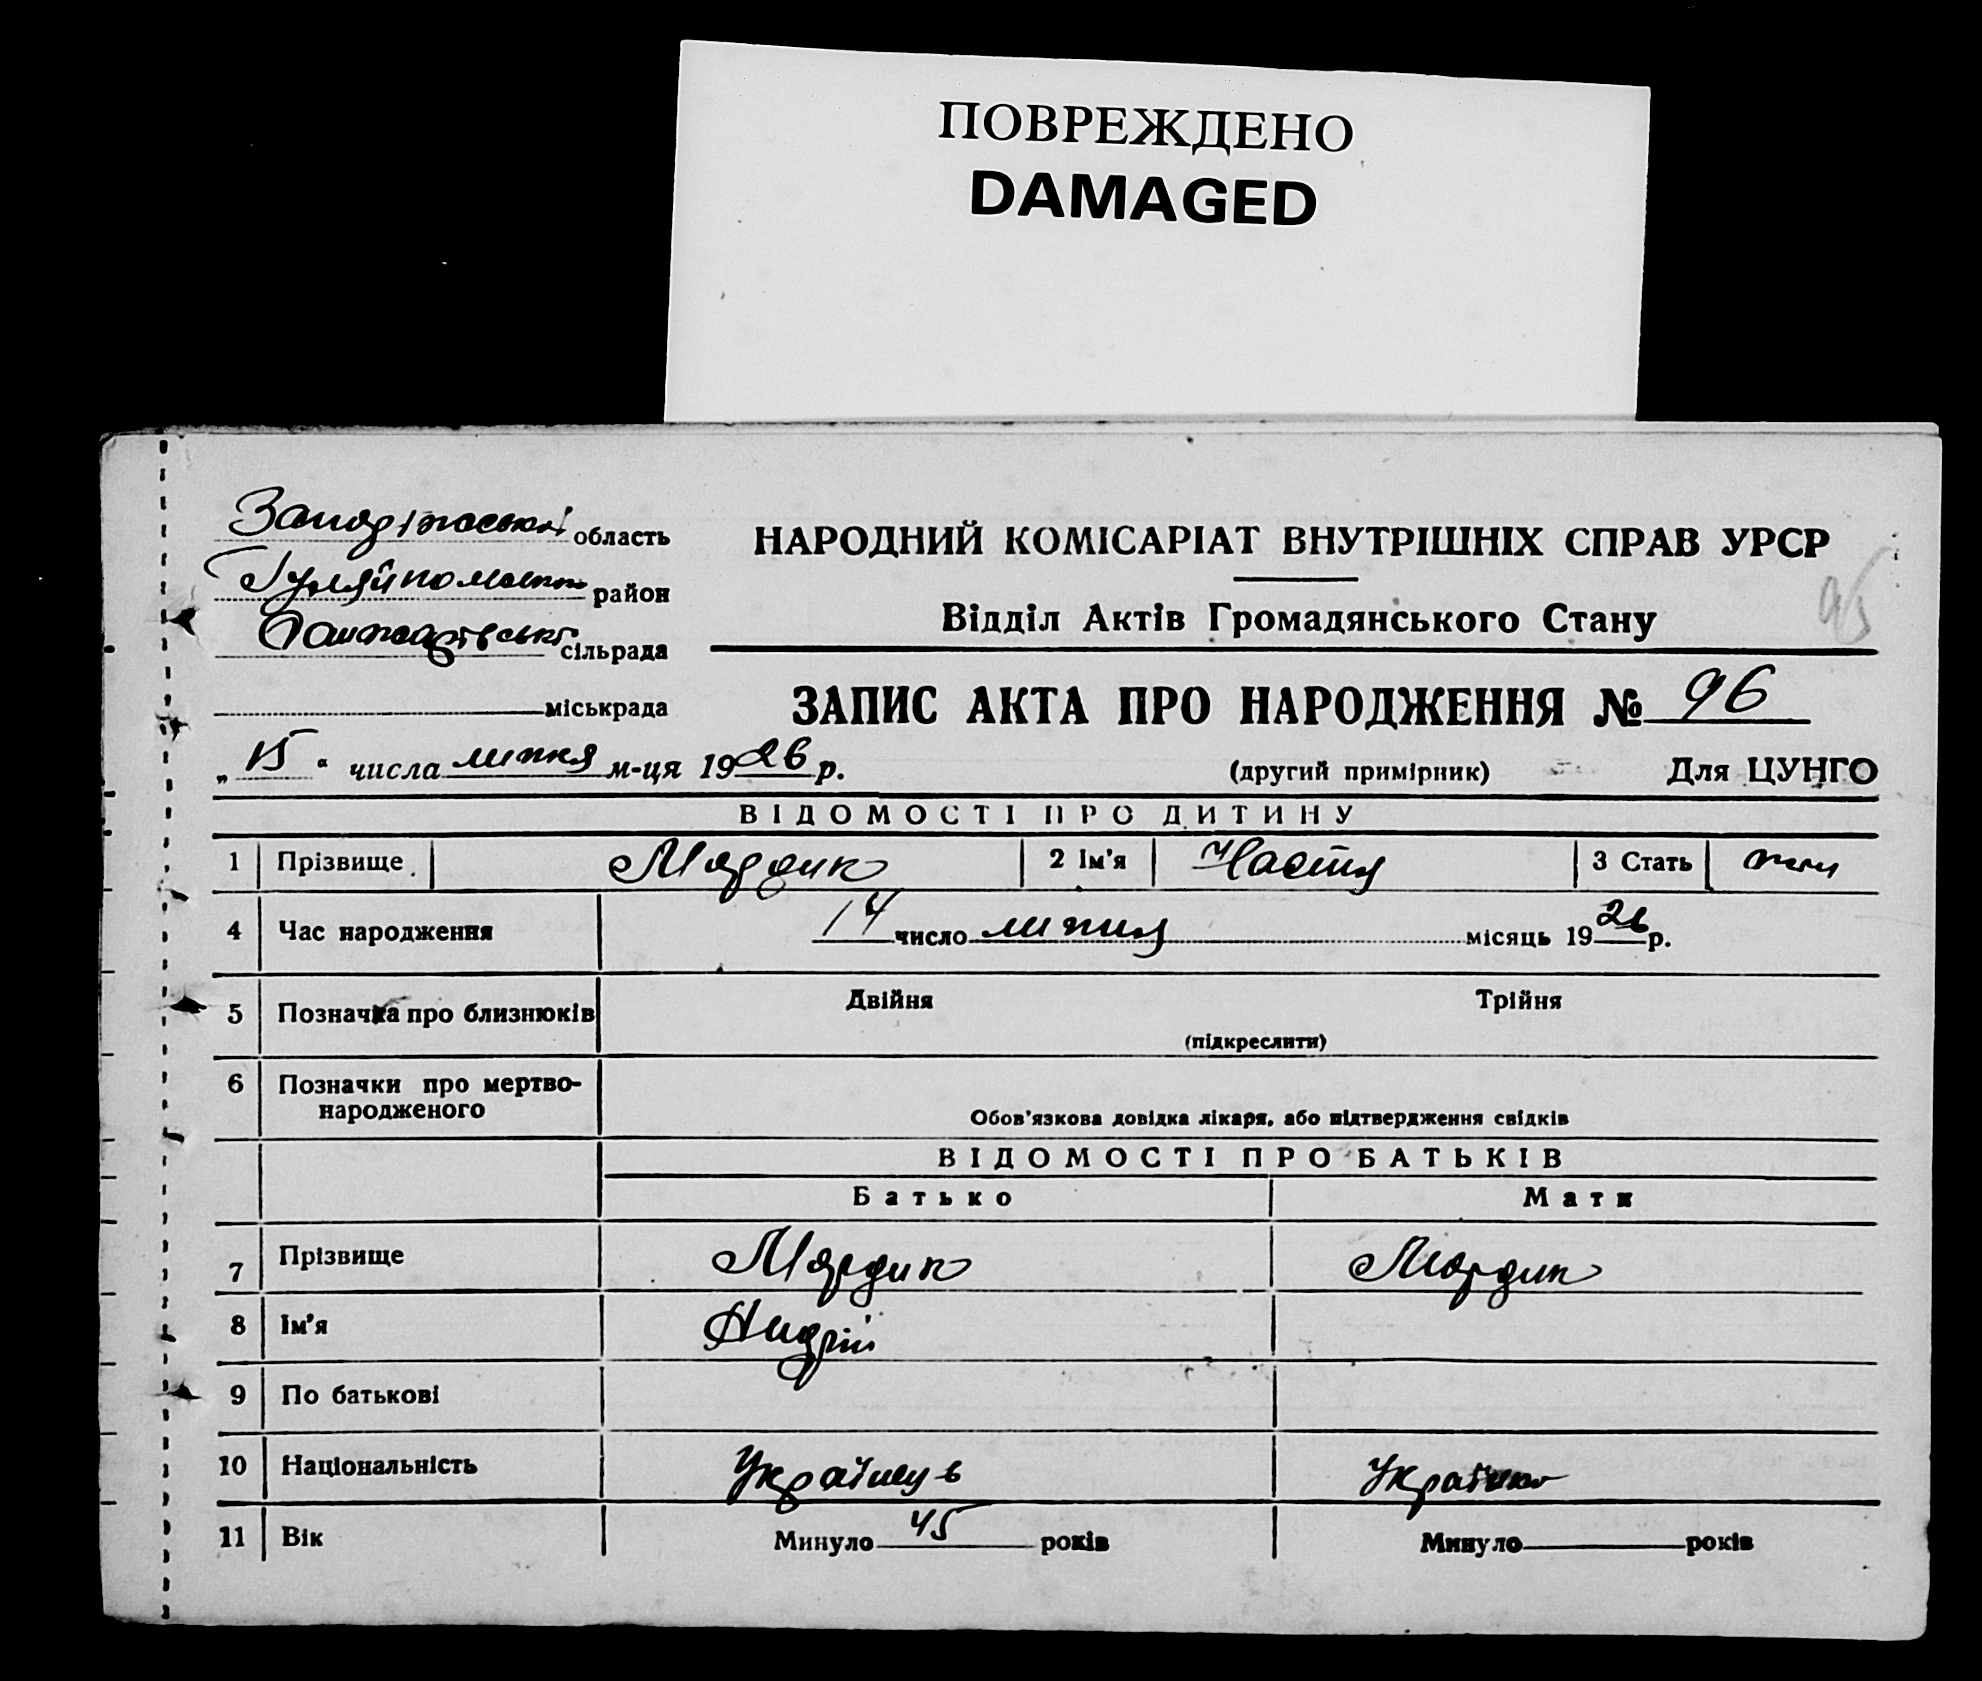 ПОВРЕЖДЕНО
DAMAGED
область
НАРОДНИЙ КОМІСАРІАТ ВНУТРІШНІХ СПРАВ УРСР
район
95
Відділ Актів Громадянського Стану
сільрада
міськрада
ЗАПИС АКТА ПРО НАРОДЖЕННЯ № 96
„15“ числа липня м-ця 1926 р.
(другий примірник) Для ЦУНГО
ВІДОМОСТІ ПРО ДИТИНУ
1 Прізвище Мордик 2 Ім'я Настя 3 Стать жін
4 Час народження 14 число липня місяць 1926 р.
5 Позначка про близнюків Двійня Трійня
(підкреслити)
6 Позначки про мертво-
народженого
Обов'язкова довідка лікаря, або підтвердження свідків
ВІДОМОСТІ ПРО БАТЬКІВ
Батько Мати
7 Прізвище Мордик Мордик
8 Ім'я Андрій
9 По батькові
10 Національність Українець Українка
11 Вік Минуло 45 років Минуло років